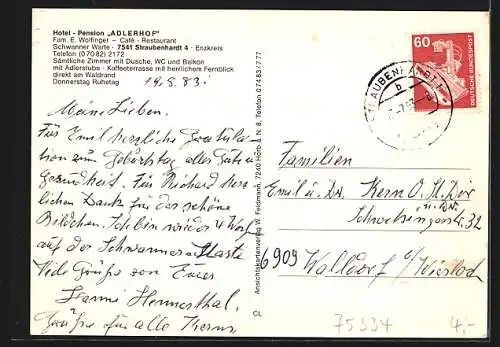 Hotel - Pension „ADLERHOF"
Fam. E. Wolfinger – Café - Restaurant
Schwanner Warte · 7541 Straubenhardt 4 · Enzkreis
Telefon (07082) 2172
Sämtliche Zimmer mit Dusche, WC und Balkon
mit Adlerstube · Kaffeeterrasse mit herrlichem Fernblick
direkt am Waldrand
Donnerstag Ruhetag
19.8.83.
Meine Lieben.
Für Emil herzliche Gratula-
tion zum Geburtstag alles Gute u.
Gesundheit. Für Richard herz-
lichen Dank für das schöne
Bildchen. Ich bin wieder 4 Woch
auf der Schwanner Warte
Viele Grüße von Eurer
Hermesthal.
Grüße für alle
Ansichtskartenverlag W. Feldmann, 7240 Horb a. N. 8, Telefon 07483/777
CL
60
DEUTSCHE BUNDESPOST
STRAUBENHARDT 1
b
Familien
Emil u. Dr. Kern
u. Dr.
Schwetzingerstr. 32
6909 Walldorf b/Wiesloch
75334
4,-